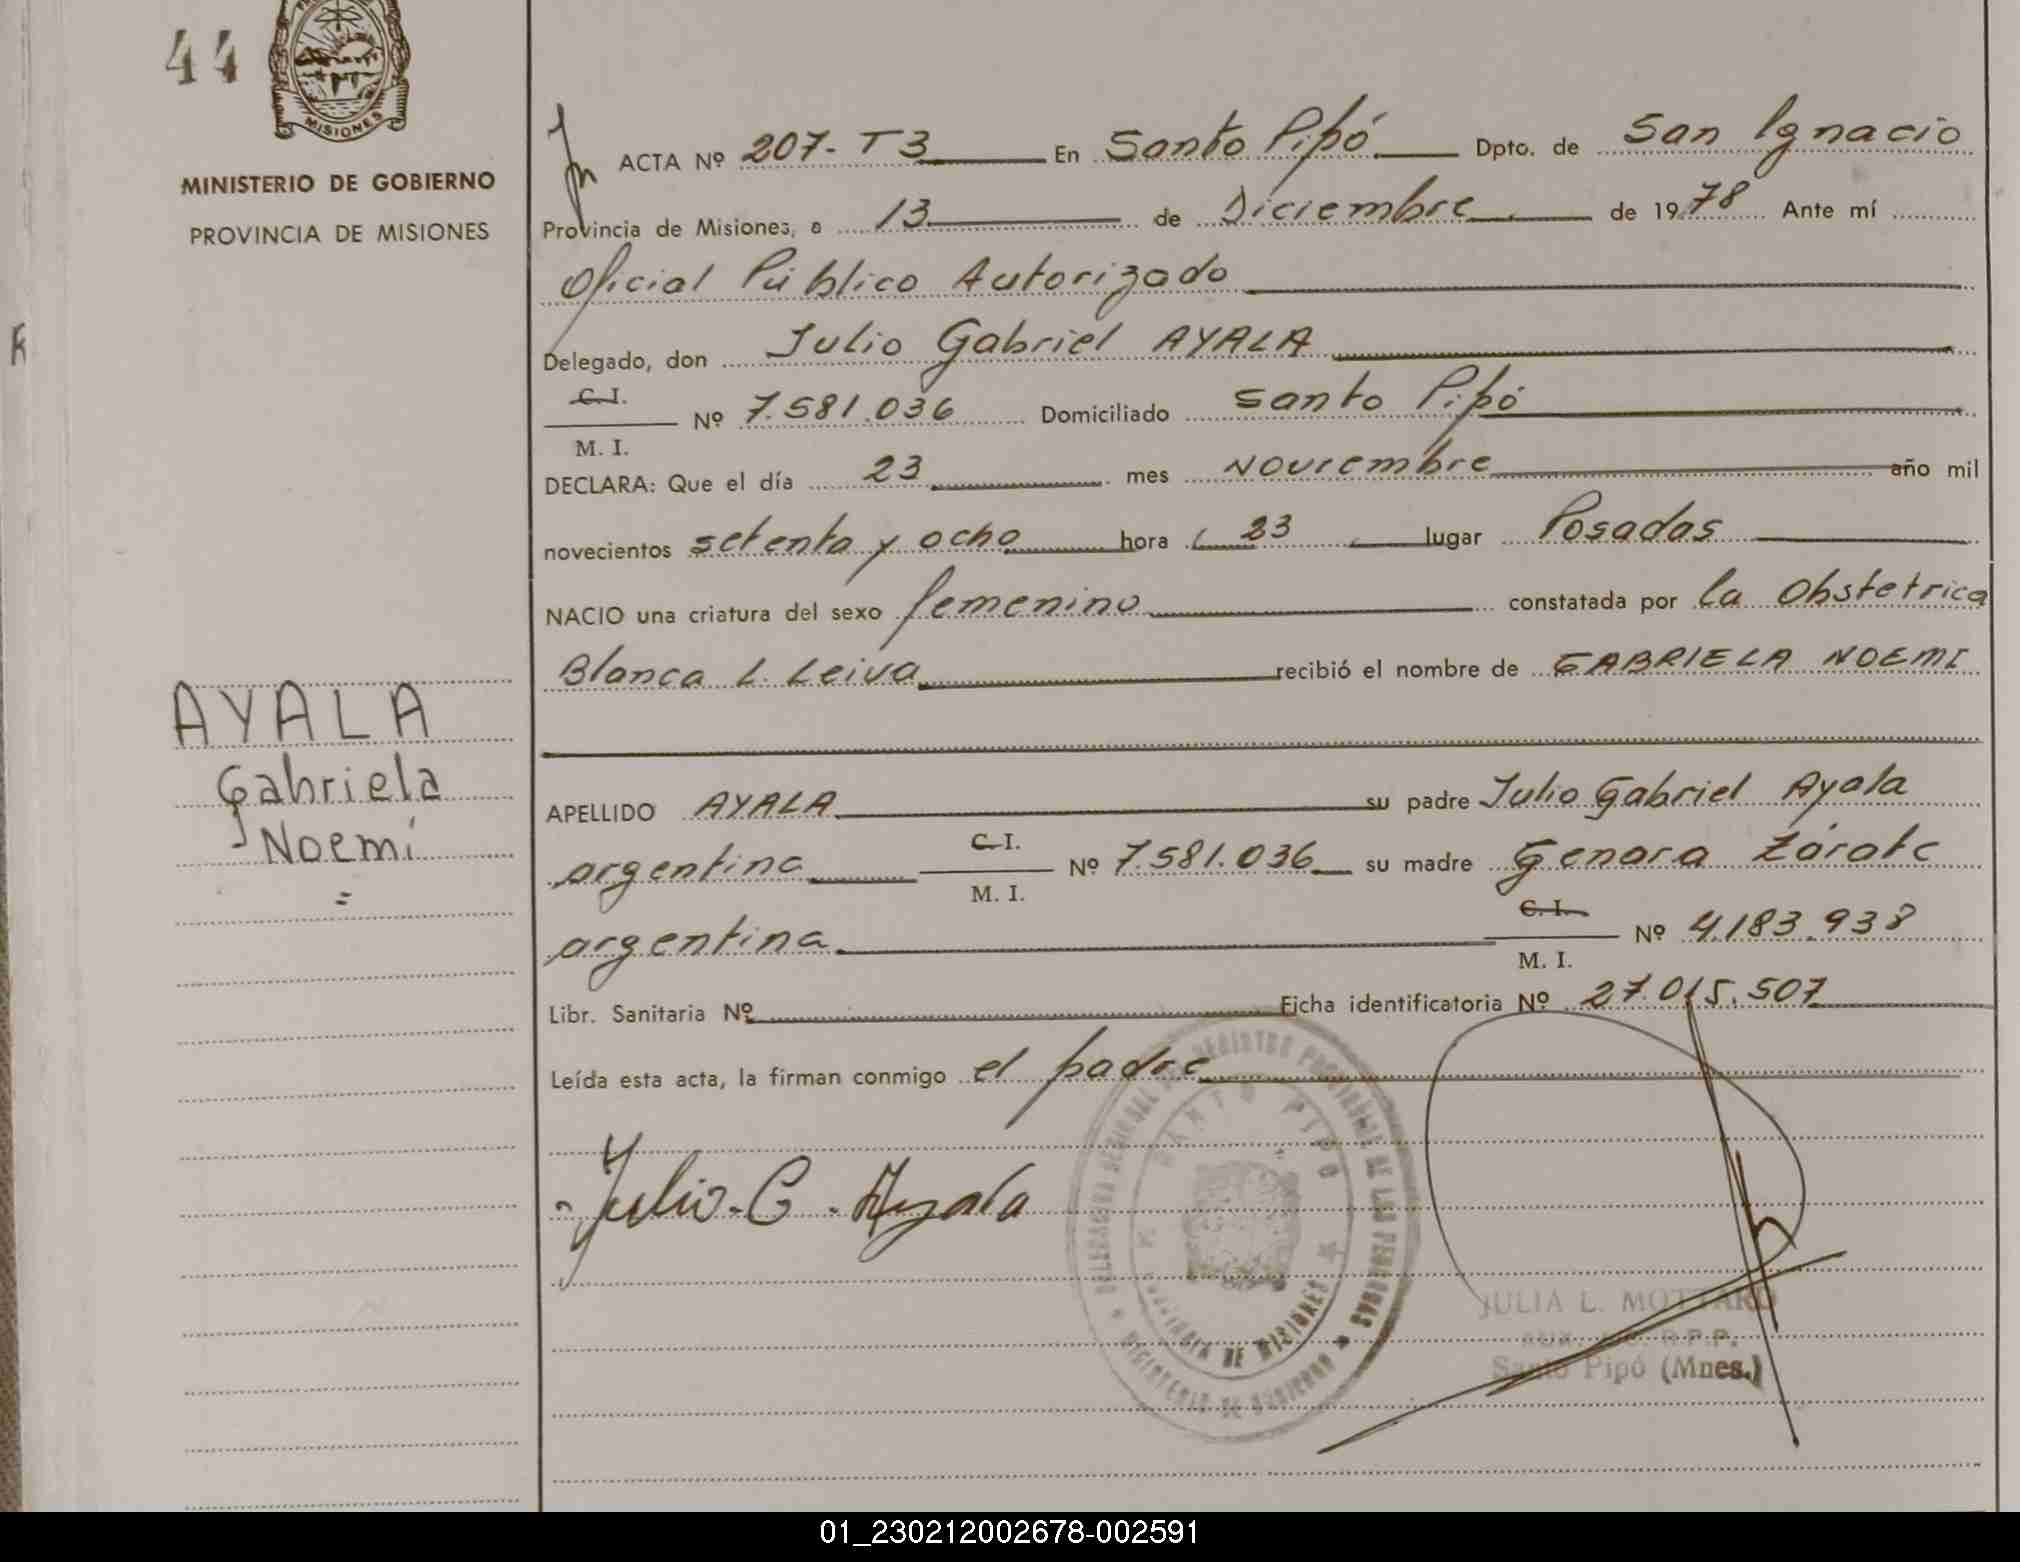 44
MISIONES
MINISTERIO DE GOBIERNO
PROVINCIA DE MISIONES
AYALA
Gabriela
Noemí
=
ACTA Nº 207- T 3 En Santo Pipó Dpto. de San Ignacio
Provincia de Misiones, a 13 de Diciembre de 1978 Ante mí
Oficial Público Autorizado
Delegado, don Julio Gabriel AYALA
C. I.
M. I. Nº 7.581.036 Domiciliado Santo Pipó
DECLARA: Que el día 23 mes Noviembre año mil
novecientos setenta y ocho hora 23 lugar Posadas
NACIO una criatura del sexo femenino constatada por la Obstetrica
Blanca L. Leiva recibió el nombre de GABRIELA NOEMI
APELLIDO AYALA su padre Julio Gabriel Ayala
argentina C. I. M. I. Nº 7.581.036 su madre Genara Zárate
argentina C. I. M. I. Nº 4.183.938
Libr. Sanitaria Nº Ficha identificatoria Nº 27.015.507
Leída esta acta, la firman conmigo el padre
Julio. G. Ayala
SANTO PIPO
PROVINCIA DE MISIONES
MINISTERIO DE GOBIERNO
JULIA L. MOTTARD
R.P.P.
Santo Pipó (Mnes.)
01_230212002678-002591